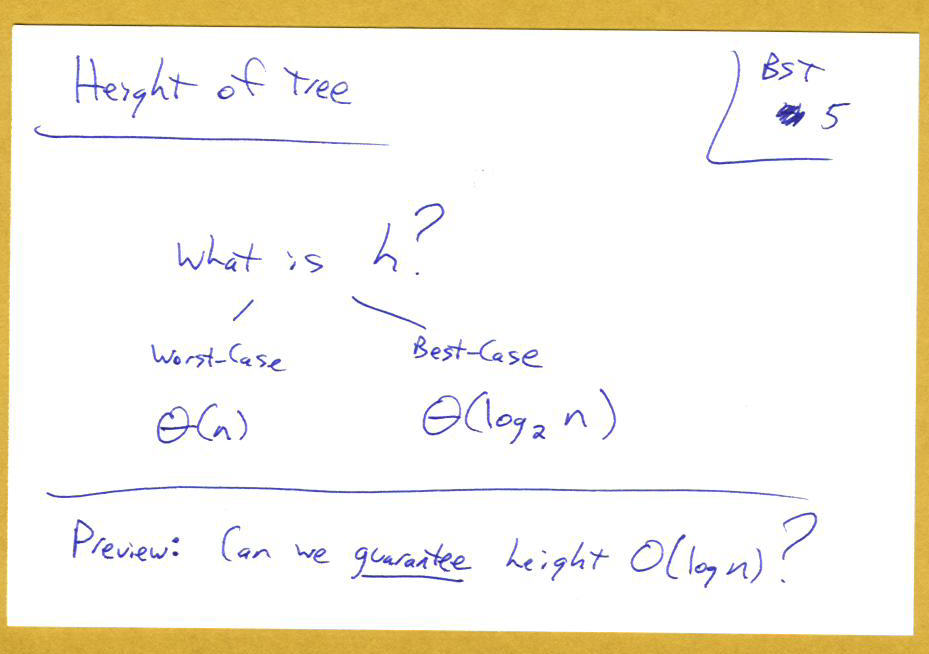 Height of Tree
BST
5
What is h?
Worst-Case
Best-Case
Θ(n)
Θ(log₂ n)
Preview: Can we guarantee height O(log n)?